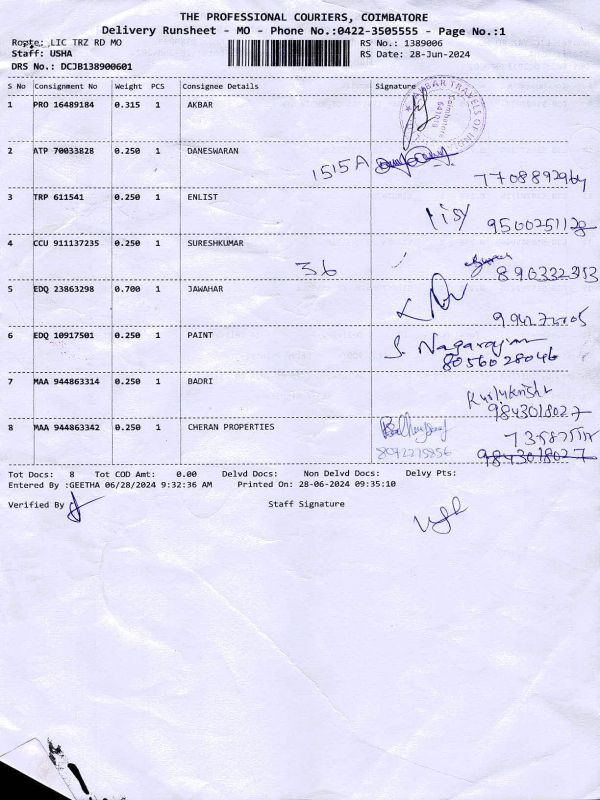 THE PROFESSIONAL COURIERS, COIMBATORE
Delivery Runsheet - MO - Phone No.:0422-3505555 - Page No.:1
Route: LIC TRZ RD MO RS No.: 1389006
Staff: USHA RS Date: 28-Jun-2024
DRS No.: DCJB138900601
S No Consignment No Weight PCS Consignee Details Signature
1 PRO 16489184 0.315 1 AKBAR
AKBAR TRAVELS OF INDIA
Coimbatore
2 ATP 70033828 0.250 1 DANESWARAN
1515A
3 TRP 611541 0.250 1 ENLIST
9500251128
4 CCU 911137235 0.250 1 SURESHKUMAR
36
5 EDQ 23863298 0.700 1 JAWAHAR
6 EDQ 10917501 0.250 1 PAINT
S. Nagarajan
8056028046
7 MAA 944863314 0.250 1 BADRI
9843018027
8 MAA 944863342 0.250 1 CHERAN PROPERTIES
9843018027
Tot Docs: 8 Tot COD Amt: 0.00 Delvd Docs: Non Delvd Docs: Delvy Pts:
Entered By :GEETHA 06/28/2024 9:32:36 AM Printed On: 28-06-2024 09:35:10
Verified By Staff Signature